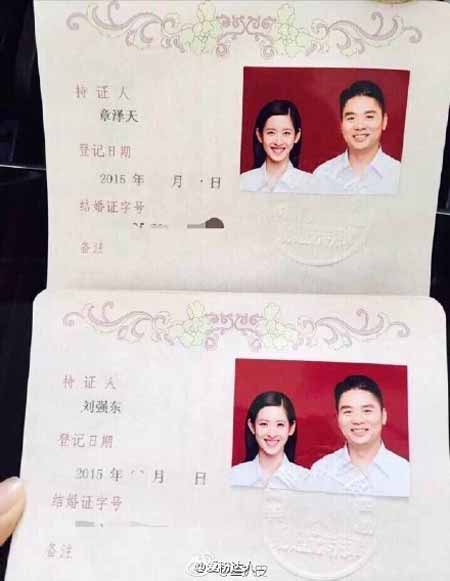 持证人
章泽天
登记日期
2015 年 月 日
结婚证字号
备注
持证人
刘强东
登记日期
2015 年 月 日
结婚证字号
备注